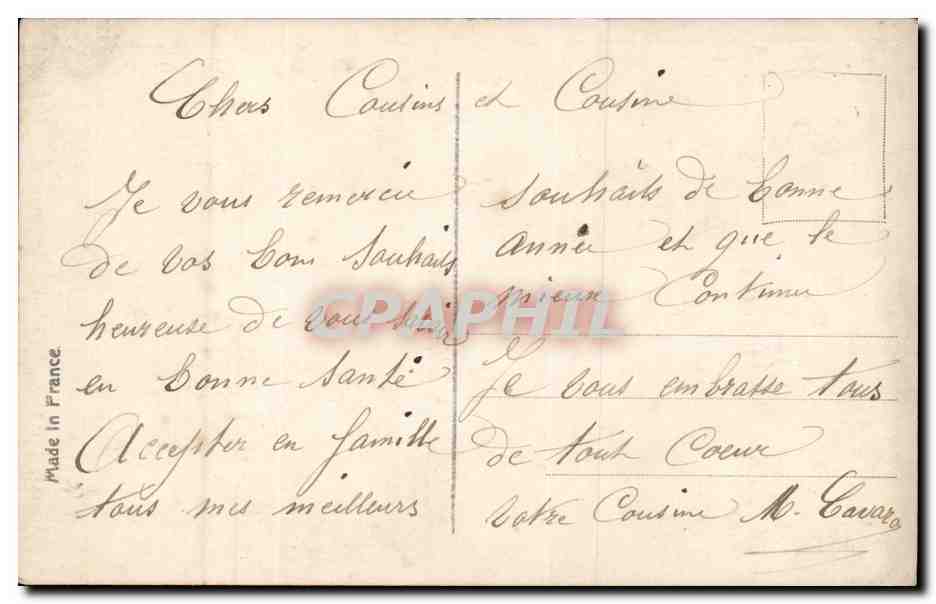 Chers Cousins et Cousine
Je vous remercie
de vos bons souhaits
heureuse de vous savoir
en bonne santé
Accepter en famille
tous mes meilleurs
souhaits de bonne
année et que le
mieux continue
Je vous embrasse tous
de tout coeur
votre Cousine M. Cavaro
Made in France
CPAPHIL